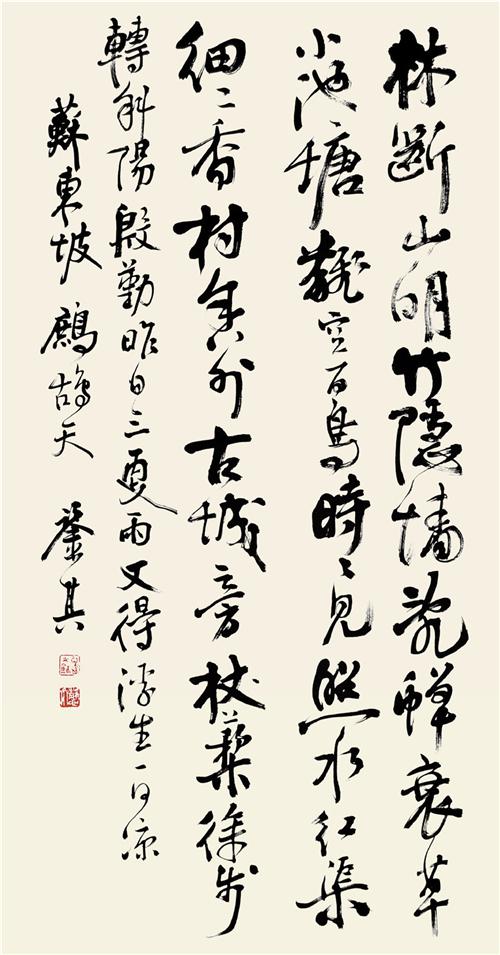 林斷山明竹隱墻亂蟬衰草
小池塘翻空百鳥時〻見照水红渠
細〻香村舍外古城旁杖藜徐步
轉斜陽殷勤昨日三更雨又得浮生一日凉
蘇東坡鷓鴣天 其